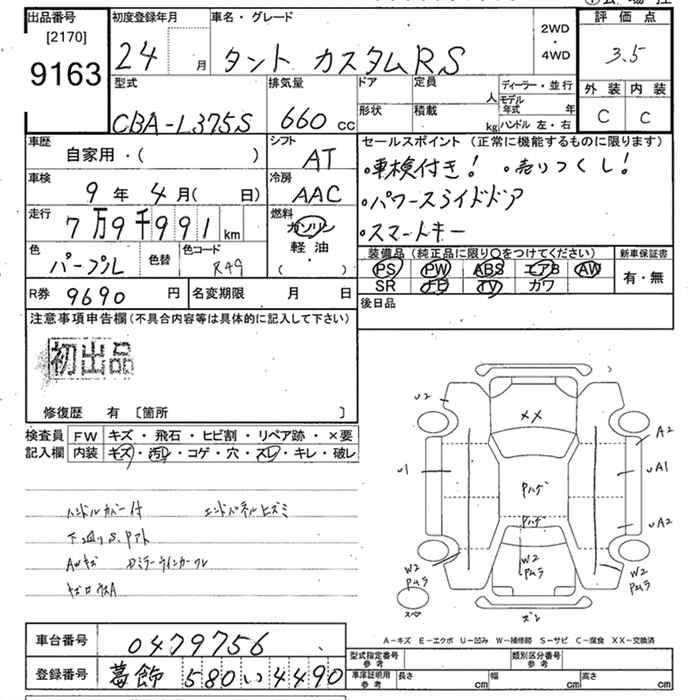 出品番号
[2170]
9163
初度登録年月
24 月
車名・グレード
タント カスタムRS
2WD
・
4WD
評価点
3.5
外装 内装
C C
型式
CBA-L375S
排気量
660 cc
ドア
形状
定員
人
積載
kg
ディーラー・並行
モデル年式 年
ハンドル 左・右
車歴
自家用・( )
シフト
AT
車検
9 年 4 月( 日)
冷房
AAC
走行
7万9千991 km
燃料
ガソリン
軽油
( )
色
パープル
色替
色コード
R49
セールスポイント (正常に機能するものに限ります)
・車検付き! ・売りつくし!
・パワースライドドア
・スマートキー
装備品(純正品に限り○をつけてください)
PS PW ABS エアB AW
SR ナビ TV カワ
新車保証書
有・無
R券 9690 円
名変期限 月 日
後日品
注意事項申告欄(不具合内容等は具体的に記入して下さい)
初出品
修復歴 有 〔箇所 〕
検査員記入欄
FW キズ・飛石・ヒビ割・リペア跡・×要
内装 キズ・汚レ・コゲ・穴・スレ・キレ・破レ
ハンドルカバー付 エンドパネルヒズミ
AWキズ Dミラーウインカーワレ
U2
××
A2
U1
Pハゲ
UA1
Pハゲ
UA2
W2
Pムラ
W2
Pムラ
W2
Pムラ
スペア
ズレ
A-キズ E-エクボ U-凹み W-補修跡 S-サビ C-腐食 XX-交換済
車台番号
0479756
登録番号
葛飾 580 い 4490
型式指定番号
参考
類別区分番号
参考
車庫証明用
参考
長さ cm
幅 cm
高さ cm